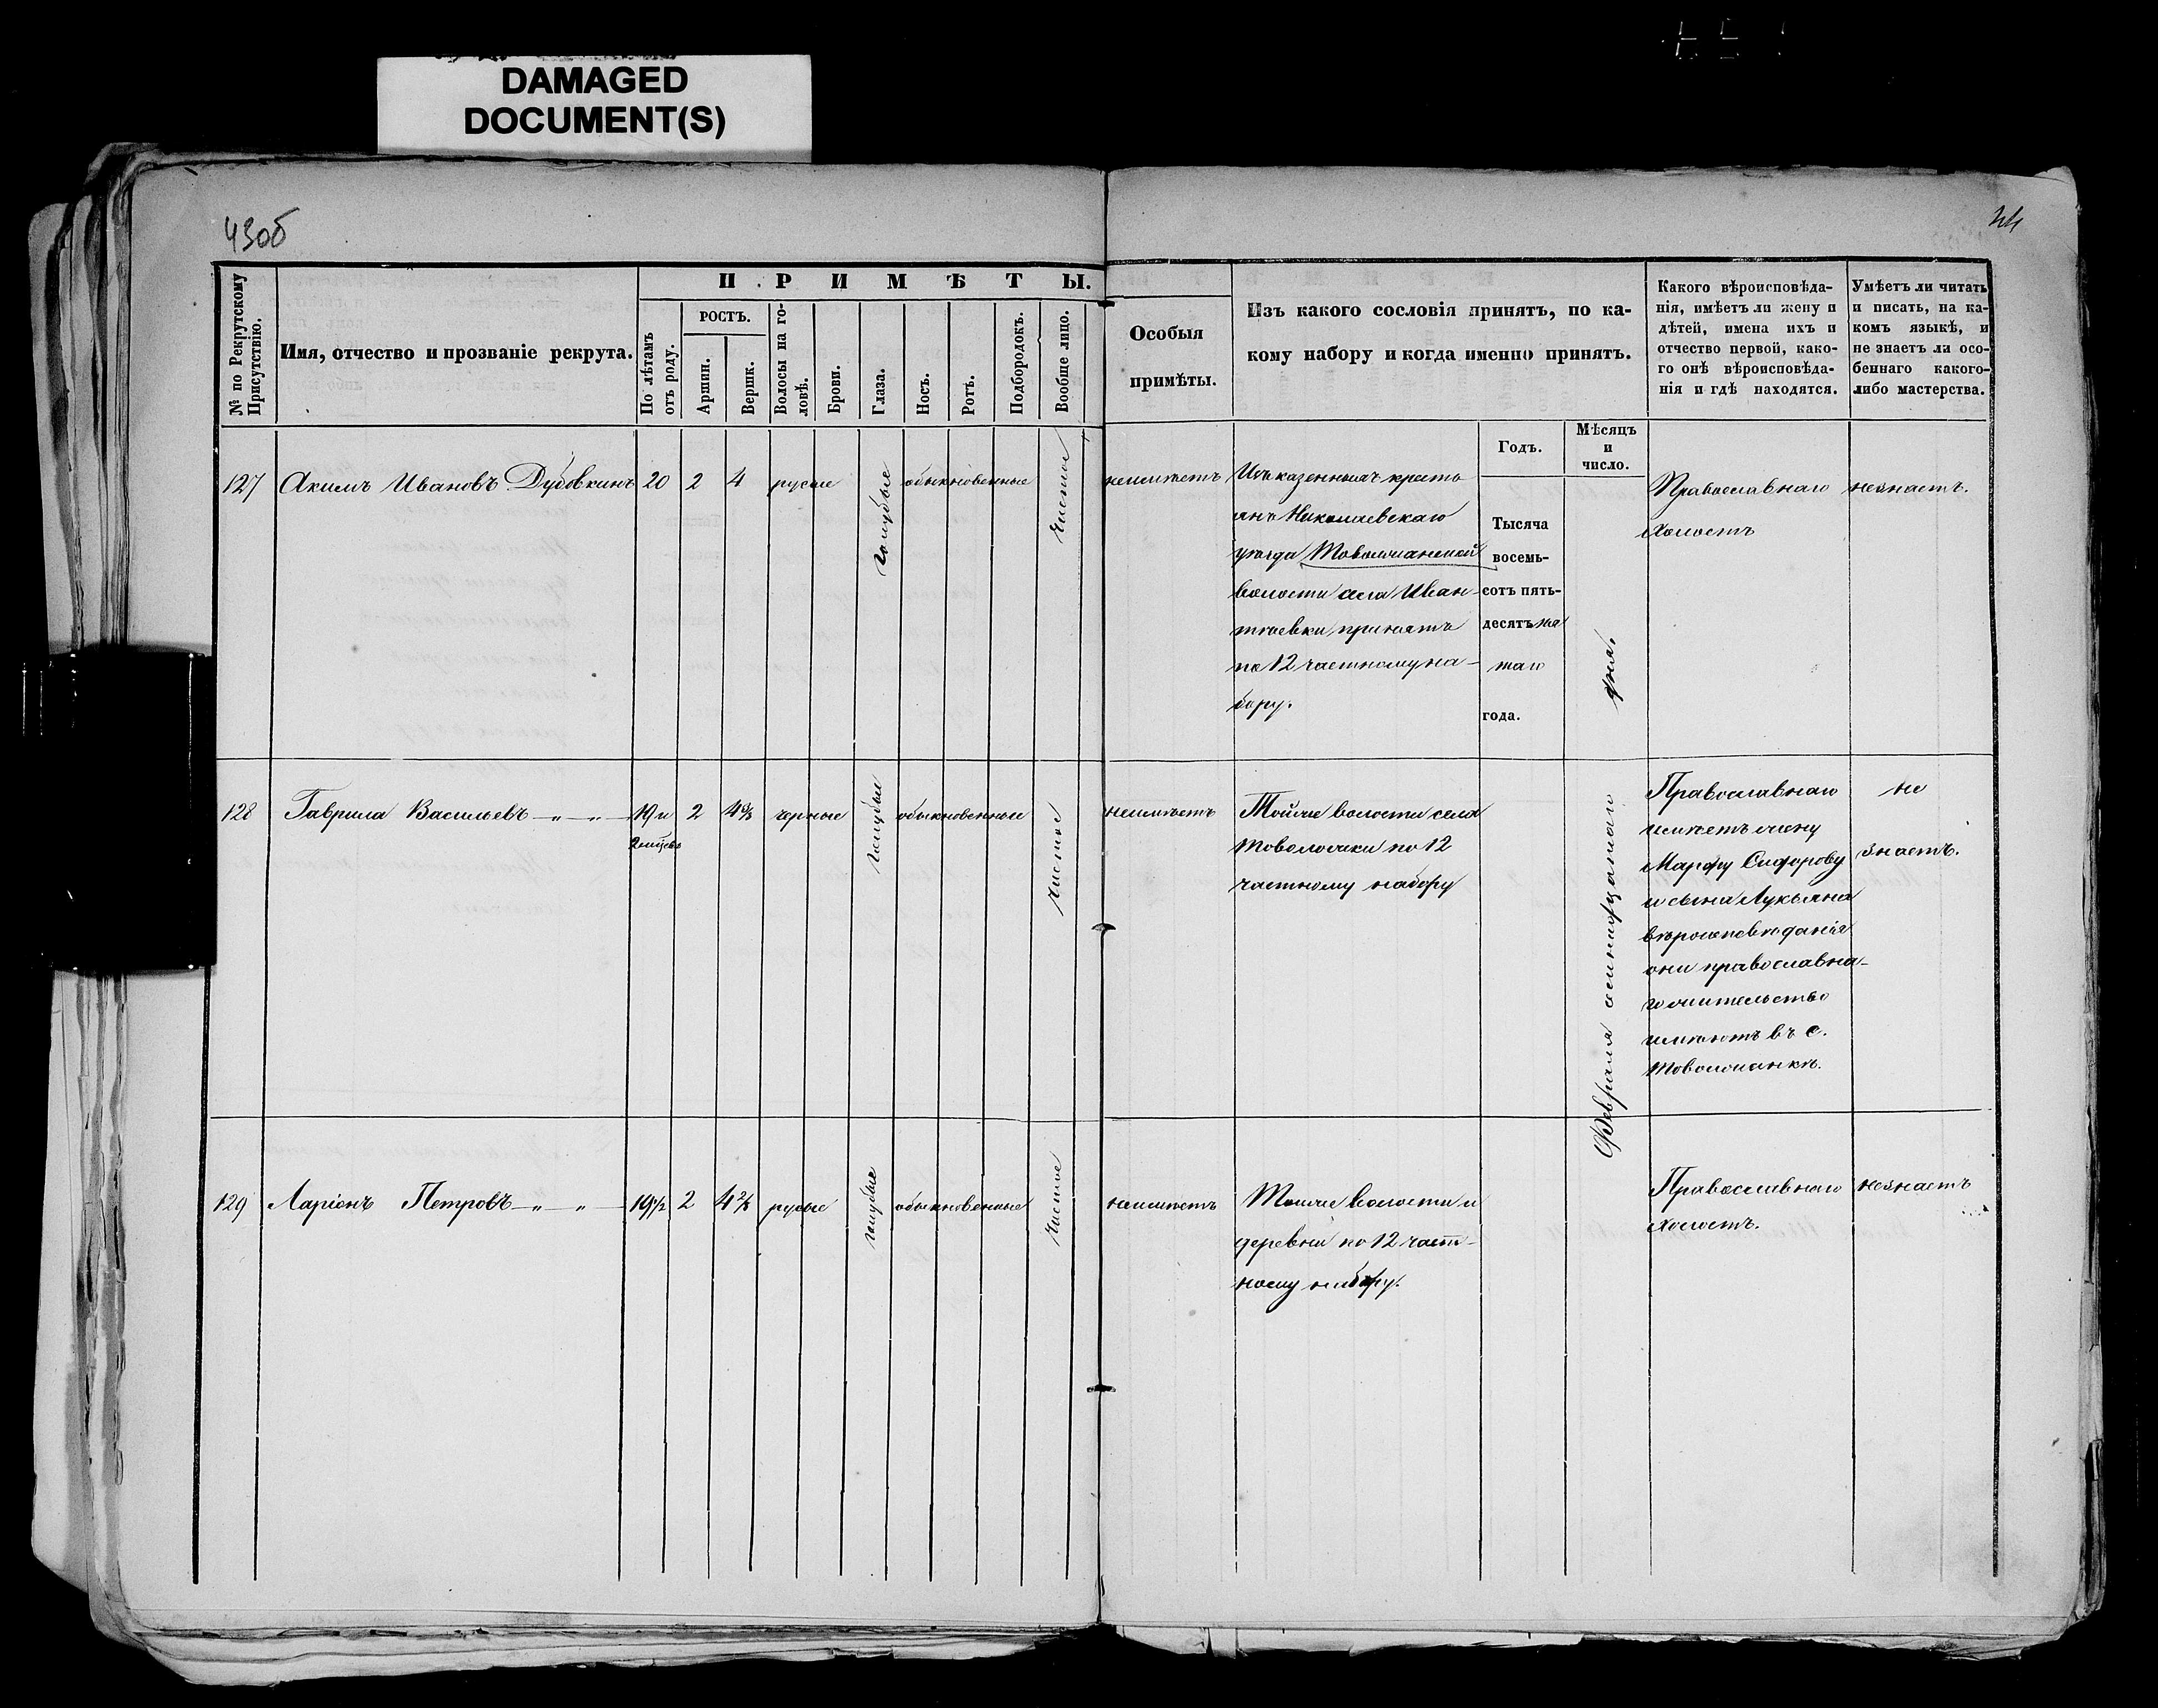 DAMAGED
DOCUMENT(S)
43об
44
№ по Рекрутскому
Присутствію.
Имя, отчество и прозваніе рекрута.
ПРИМѢТЫ.
По лѣтамъ
отъ роду.
РОСТЪ.
Аршин.
Вершк.
Волосы на го-
ловѣ.
Брови.
Глаза.
Носъ.
Ротъ.
Подбородокъ.
Вообще лицо.
Особыя
примѣты.
Изъ какого сословія принятъ, по ка-
кому набору и когда именно принятъ.
Годъ.
Мѣсяцъ
и
число.
Какого вѣроисповѣда-
нія, имѣетъ ли жену и
дѣтей, имена ихъ и
отчество первой, како-
го онѣ вѣроисповѣда-
нія и гдѣ находятся.
Умѣетъ ли читать
и писать, на ка-
комъ языкѣ, и
не знаетъ ли осо-
беннаго какого-
либо мастерства.
127
Акимъ Ивановъ Дубовкинъ
20
2
4
русые
голубые
обыкновенные
Чистое
неимѣетъ
Изъ казенныхъ кресть
янъ Николаевскаго
уѣзда Товолжанской
волости села Иван-
тѣевки, принятъ
по 12 частному на-
бору.
Тысяча
восемь-
сотъ пять-
десятъ
таго
года.
Февраля семнадцатаго
дня.
Православнаго
Холостъ
незнаетъ.
128
Гаврила Васильевъ — „ — „ —
19 и
2
черные
голубые
обыкновенные
Чистое
неимѣетъ
Тойже волости села
по 12
частному набору
Православнаго
имѣетъ жену
Марфу Сидорову
и сына Лукьяна
вѣроисповѣданія
они православна-
го жительство
имѣютъ въ с.
Товолжанкѣ.
не
знаетъ.
129
Ларіонъ Петровъ — „ — „ —
19½
2
4 2/8
русые
голубые
обыкновенные
Чистое
неимѣетъ
Тойже волости и
деревни по 12 част-
ному набору.
Православнаго
Холостъ.
незнаетъ